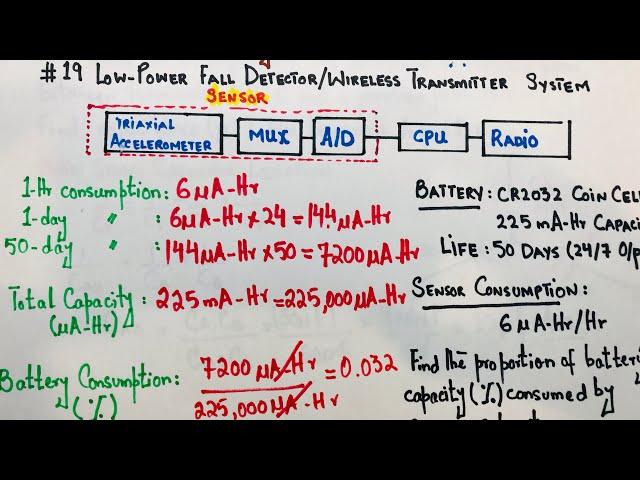 #19 LOW-POWER FALL DETECTOR/WIRELESS TRANSMITTER SYSTEM
SENSOR
TRIAXIAL
ACCELEROMETER
MUX
A/D
CPU
RADIO
1-Hr consumption: 6μA-Hr
1-day " : 6μA-Hr×24 = 144μA-Hr
50-day " : 144μA-Hr×50 = 7200μA-Hr
Total Capacity : 225mA-Hr = 225,000μA-Hr
(μA-Hr)
Battery Consumption: 7200 μA-Hr / 225,000μA-Hr = 0.032
(%)
BATTERY : CR2032 COIN CELL
225 mA-Hr CAPACI
LIFE : 50 DAYS (24/7 O/p
SENSOR CONSUMPTION :
6μA-Hr/Hr
Find the proportion of batter
capacity (%) consumed by